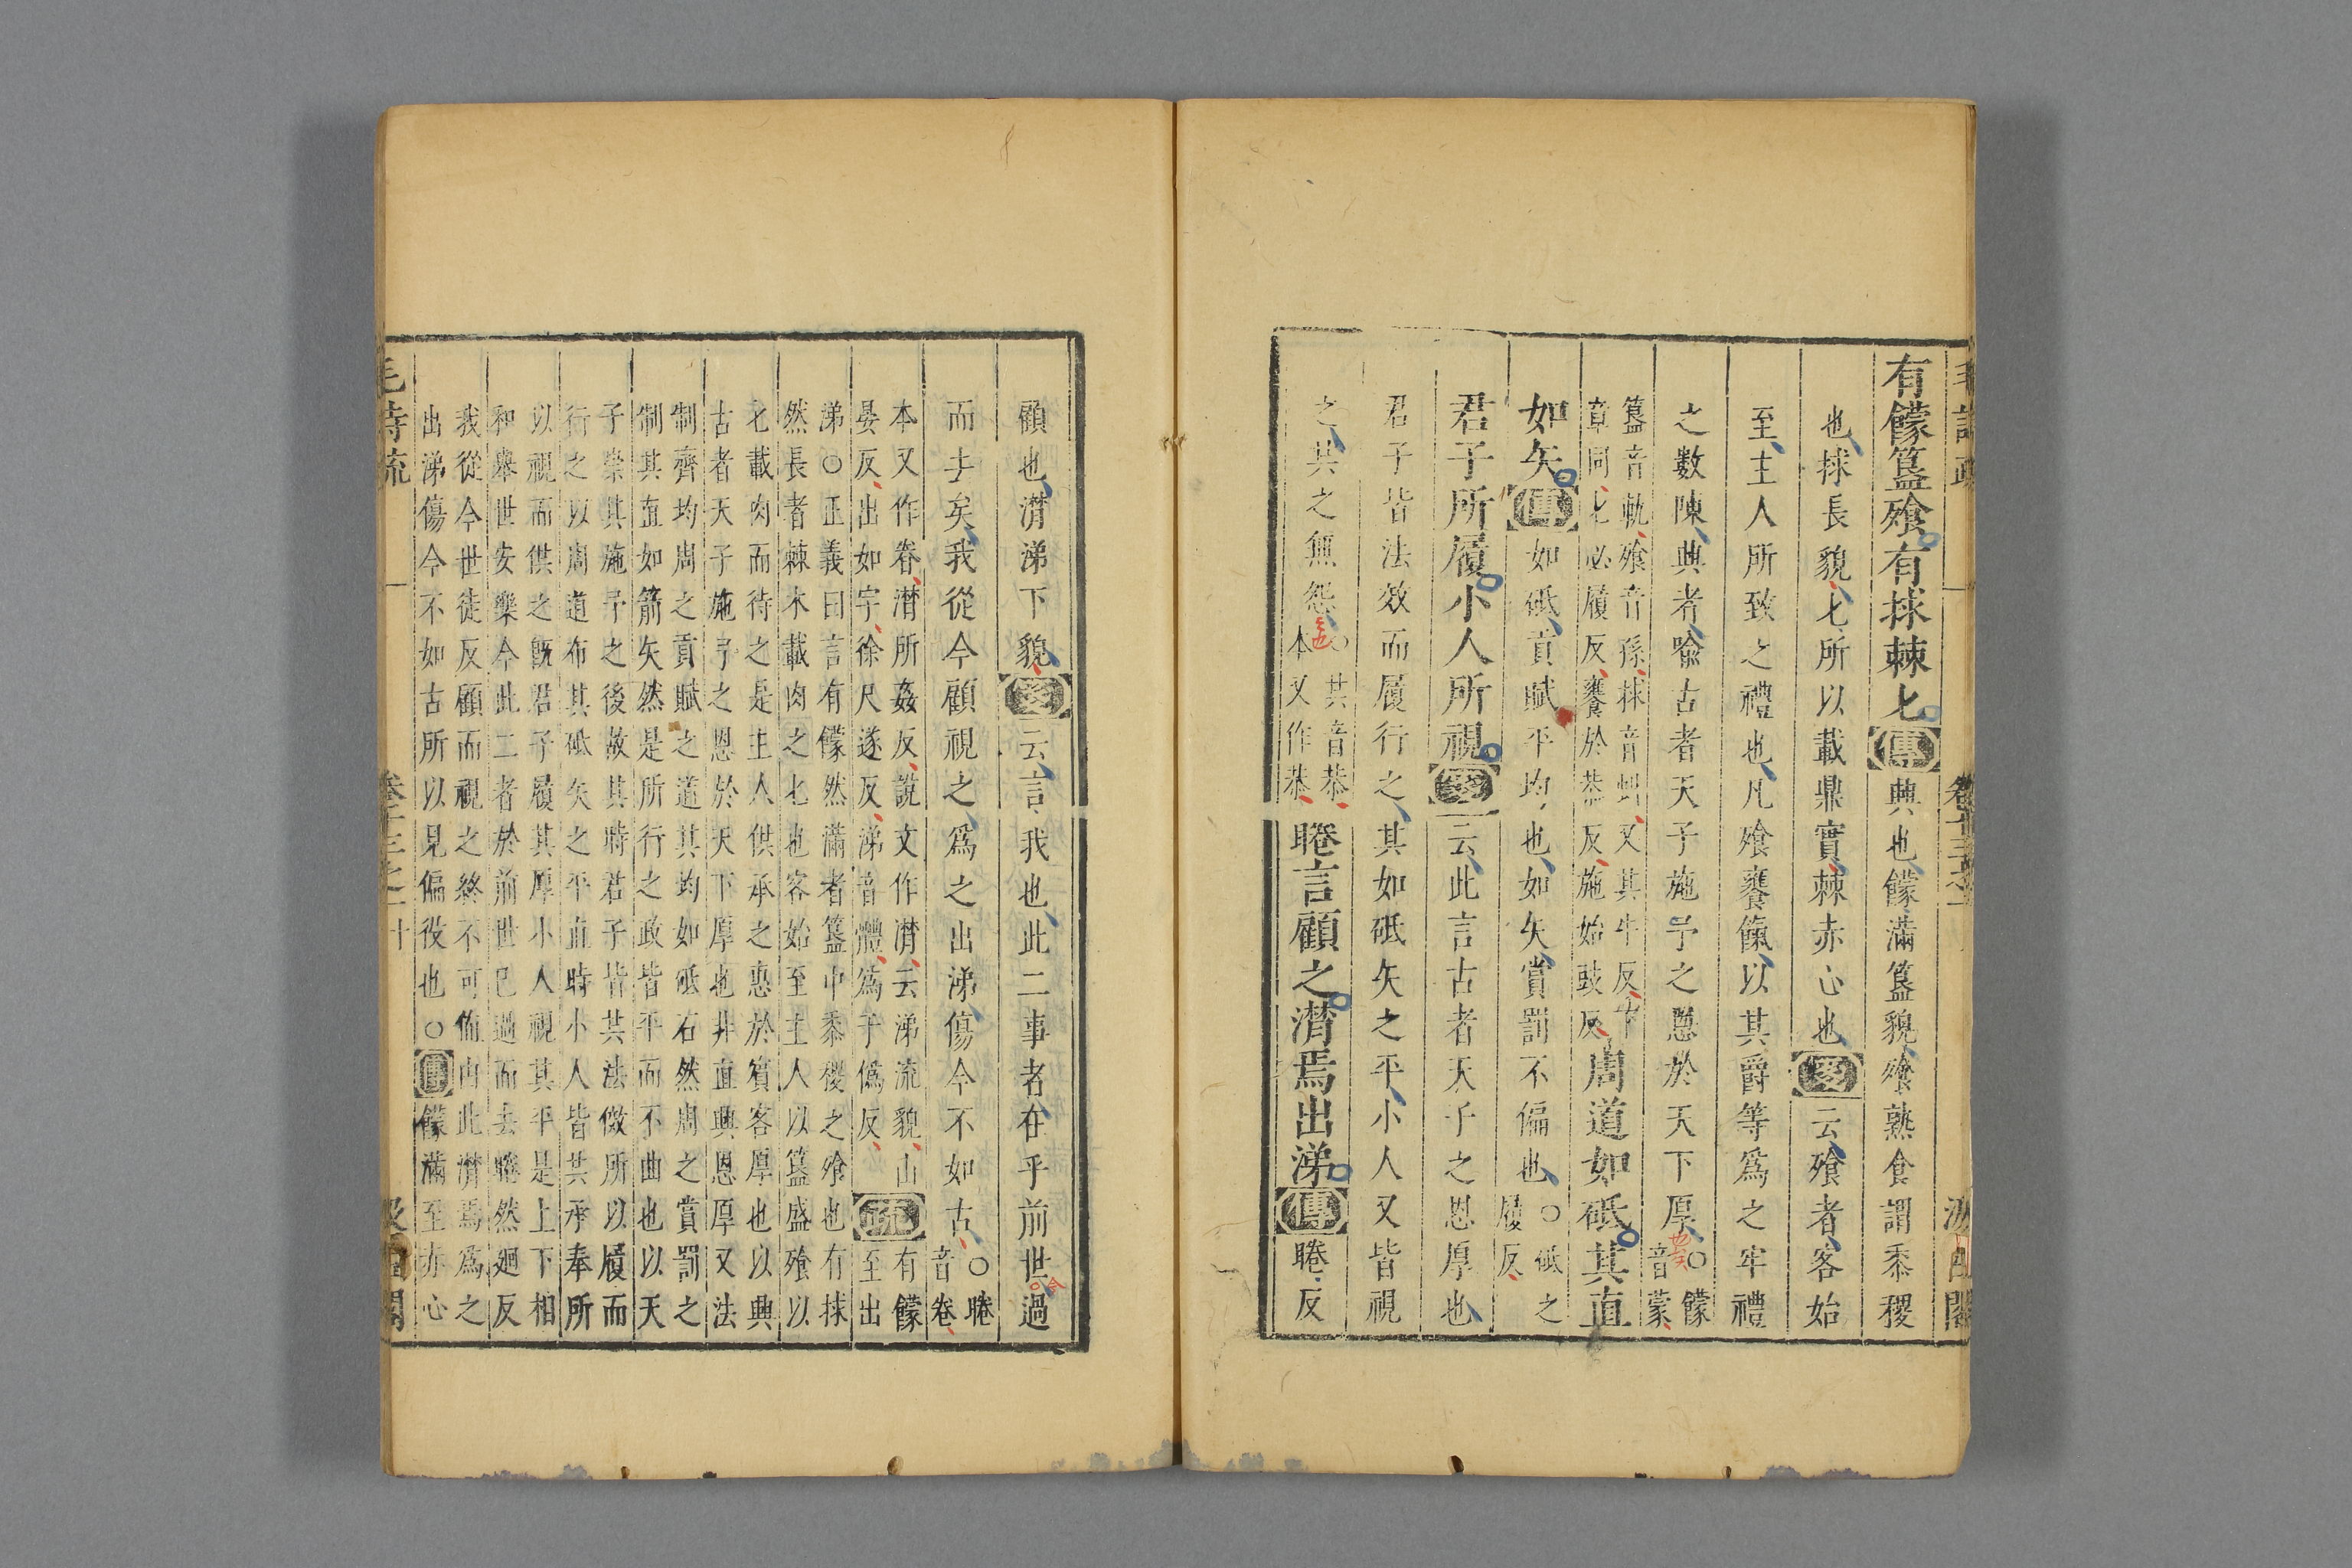 有饛簋飧有捄棘匕傳興也饛滿簋貌飧熟食謂黍稷
也捄長貌匕所以載鼎實棘赤心也箋云飧者客始
至主人所致之禮也凡飧饔餼以其爵等爲之牢禮
之數陳興者喻古者天子施予之恩於天下厚○饛音蒙
簋音軌飧音孫捄音虯又其牛反
章同匕必履反饔於恭反施始豉反周道如砥其直
如矢傳如砥貢賦平均也如矢賞罰不偏也○砥之履反
君子所履小人所視箋云此言古者天子之恩厚也
君子皆法效而履行之其如砥矢之平小人又皆視
之其之無怨○共音恭本又作恭睠言顧之潸焉出涕傳睠反
顧也潸涕下貌箋云言我也此二事者在乎前世過
而去矣我從今顧視之爲之出涕傷今不如古○睠音卷
本又作眷潸所姦反說文作潸云涕流貌山
晏反出如字徐尺遂反涕音體爲于僞反疏有饛至出
涕○正義曰言有饛然滿者簋中黍稷之飧也有捄
然長者棘木載肉之匕也客始至主人以簋盛飧以
匕載肉而待之是主人供承之惠於賓客厚也以興
古者天子施予之恩於天下厚也井直興恩厚又法
制齊均周之貢賦之道其均如砥石然周之賞罰之
制其直如箭矢然是所行之政皆平而不曲也以天
子崇其施予之後故其時君子皆共法傚所以履而
行之以周道布其砥矢之平直時小人皆共承奉所
以視而供之旣君子履其厚小人視其平是上下相
和舉世安樂今此二者於前世已過而去睠然廻反
我從今世徒反顧而視之終不可值由此潸焉爲之
出涕傷今不如古所以見偏役也○傳饛滿至赤心
毛詩疏 卷十三之一 汲古閣